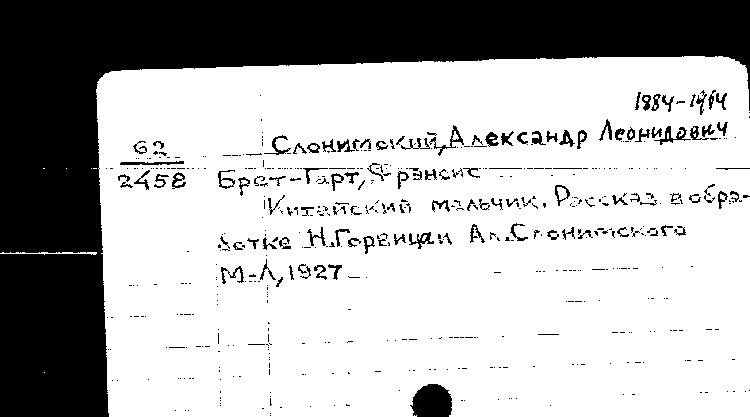 1884-1964
62 Слонимский, Александр Леонидович
2458 Брет-Гарт, Фрэнсис
Китайский мальчик. Рассказ в обра-
ботке Н.Горвица и Ал.Слонимского
М-Л, 1927